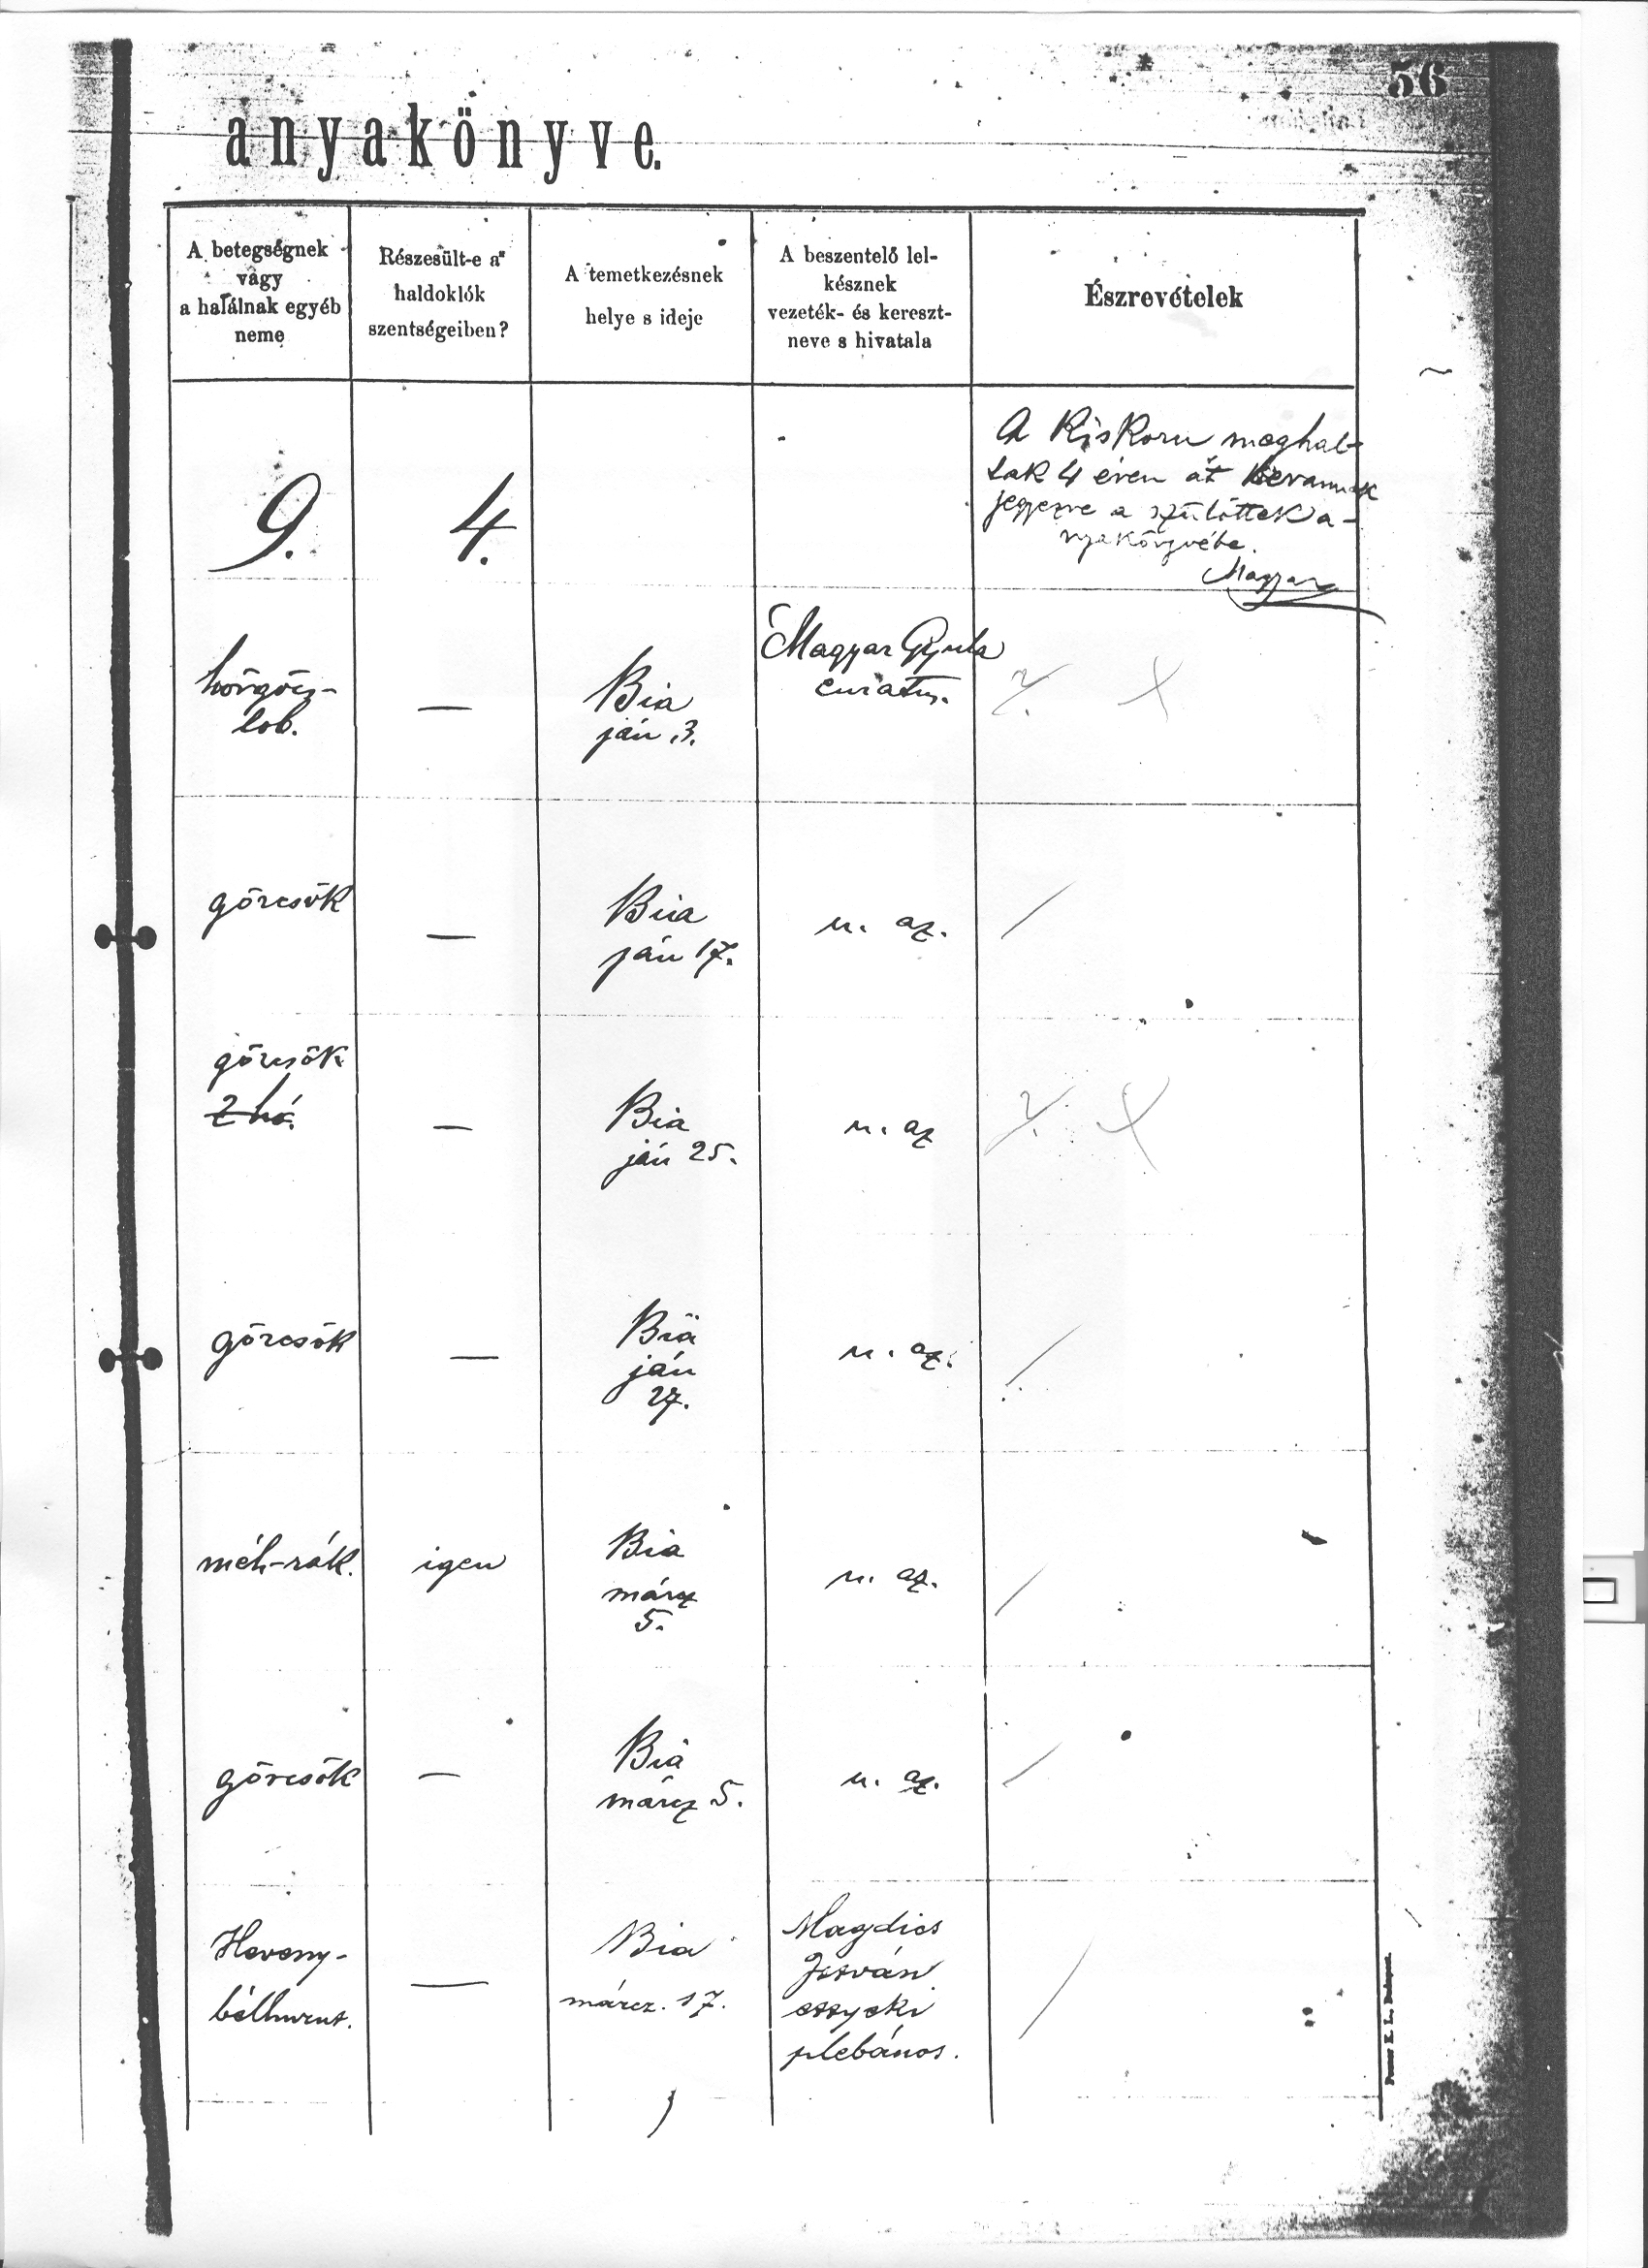 56
anyakönyve.
A betegségnek
vagy
a halálnak egyéb
neme
Részesült-e a
haldoklók
szentségeiben?
A temetkezésnek
helye s ideje
A beszentelő lel-
késznek
vezeték- és kereszt-
neve s hivatala
Észrevételek
9.
4.
A kiskoru meghal-
tak 4 éven át bevannak
jegyezve a szülöttek a-
nyakönyvébe.
Magyar
hörgőcs-
lob.
—
Bia
ján. 3.
Magyar Gyula
curatus.
görcsök
—
Bia
ján 17.
u. az.
görcsök
2 hó.
—
Bia
ján 25.
u. az
görcsök
—
Bia
ján
27.
u. az.
méh-rák.
igen
Bia
márcz
5.
u. az.
görcsök
—
Bia
márcz 5.
u. az.
Heveny-
bélhurut.
—
Bia
márcz. 17.
Magdics
István
etyeki
plébános.